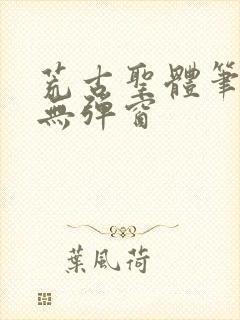 荒古聖體筆
無彈窗
葉風荷